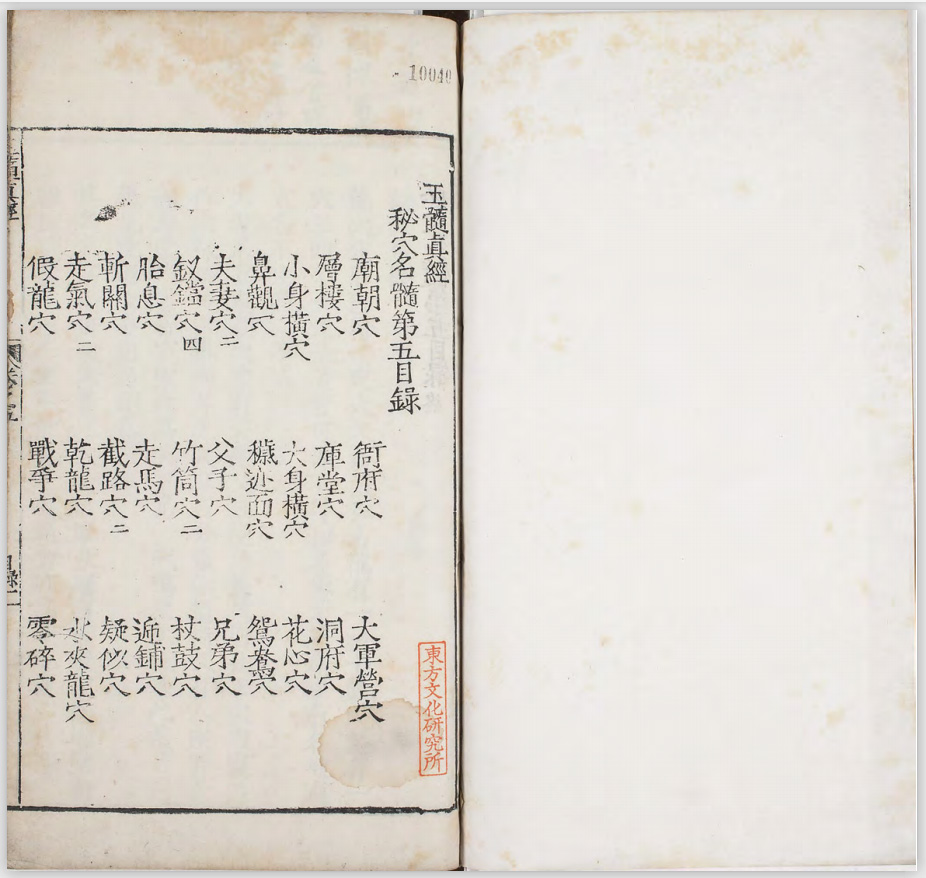 10040
玉髓真經
秘穴名髓第五目錄
廟朝穴 衙府穴 大軍營穴
層樓穴 庫堂穴 洞府穴
小身橫穴 大身橫穴 花心穴
鼻觀穴 面穴 鴛鴦穴
夫妻穴二 父子穴 兄弟穴
釵鐺穴四 竹筒穴二 杖鼓穴
胎息穴 走馬穴 逓鋪穴
斬關穴 截路穴二 疑似穴
走氣穴二 乾龍穴 水夾龍穴
假龍穴 戰爭穴 零碎穴
東方文化研究所